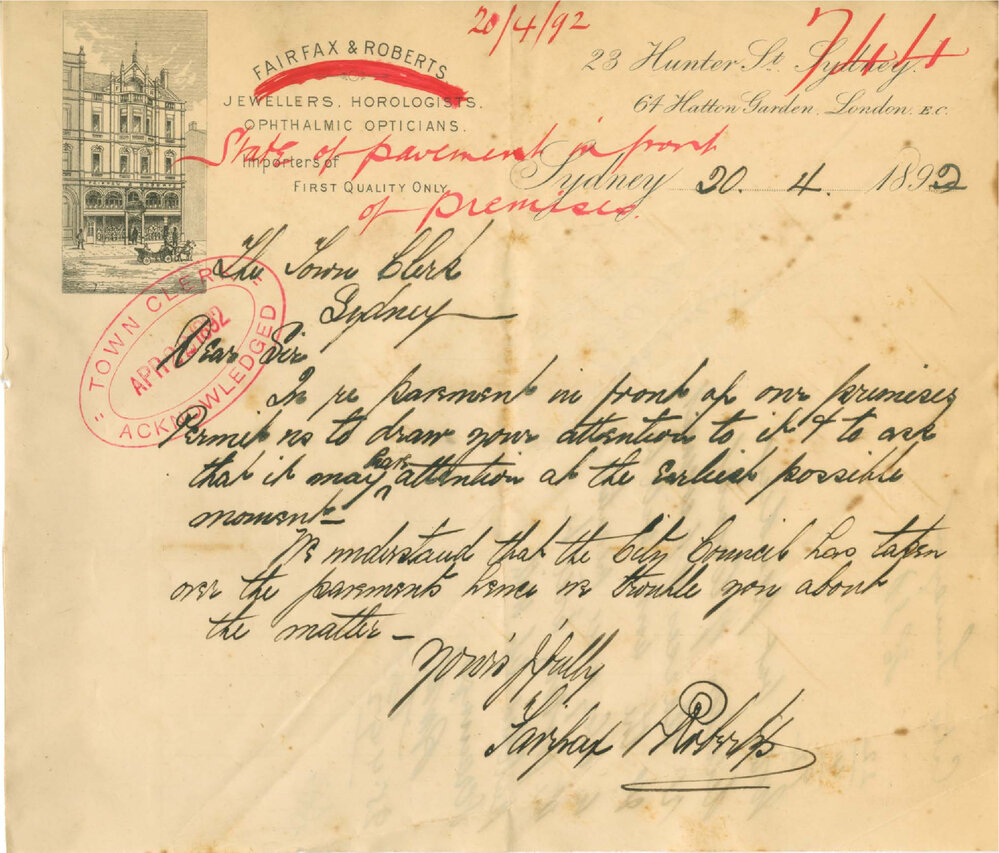 20/4/92
744
FAIRFAX & ROBERTS,
JEWELLERS. HOROLOGISTS.
OPHTHALMIC OPTICIANS.
Importers of
FIRST QUALITY ONLY
23 Hunter St. Sydney.
64 Hatton Garden, London. E.C.
State of pavement in front
of premises.
Sydney 20. 4. 1892
TOWN CLERK
APR 1892
ACKNOWLEDGED
The Town Clerk
Sydney
Dear Sir
In re pavement in front of our premises
Permit us to draw your attention to it & to ask
that it may have attention at the Earliest possible
moment—
We understand that the City Council has taken
over the pavements hence we trouble you about
the matter—
Yours f'fully
Fairfax & Roberts